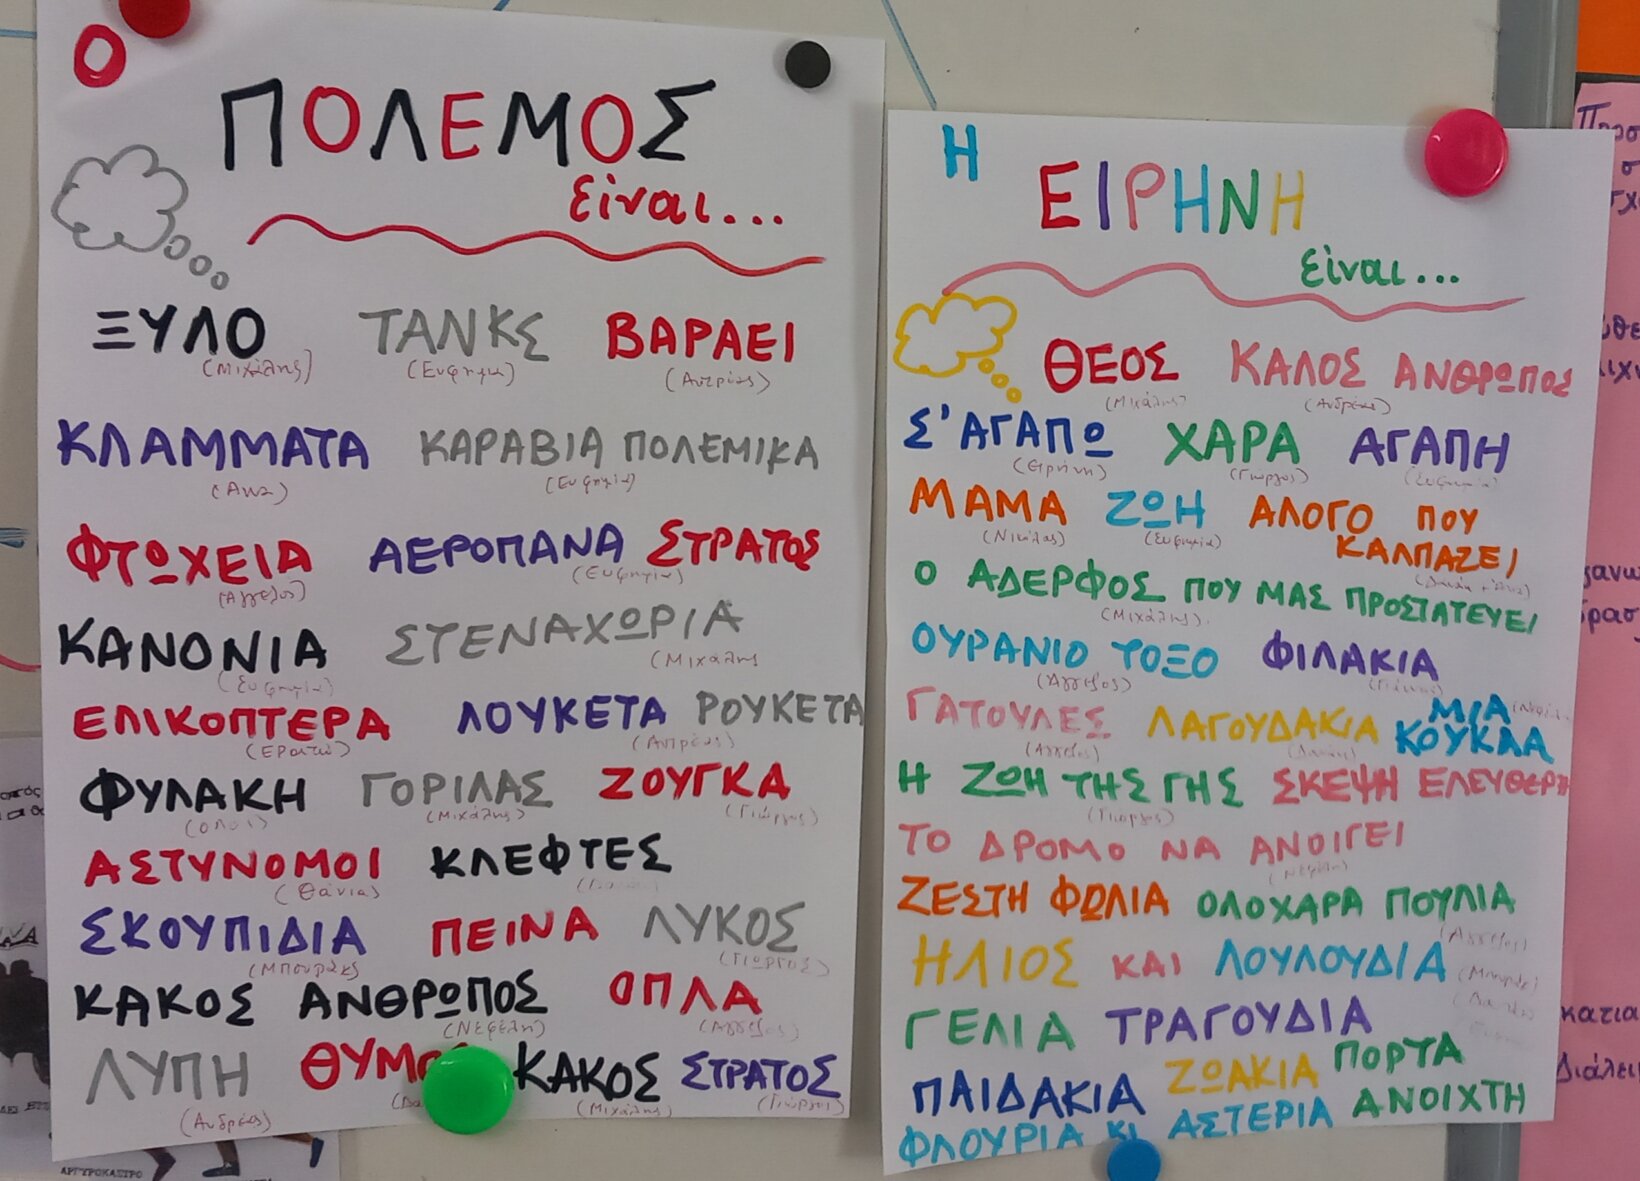 Ο
ΠΟΛΕΜΟΣ
είναι...
ΞΥΛΟ ΤΑΝΚΣ ΒΑΡΑΕΙ
(Μιχάλης) (Ευφημία) (Αντρέας)
ΚΛΑΜΜΑΤΑ ΚΑΡΑΒΙΑ ΠΟΛΕΜΙΚΑ
(Ευφημία)
ΦΤΩΧΕΙΑ ΑΕΡΟΠΑΝΑ ΣΤΡΑΤΟΣ
(Άγγελος) (Ευφημία)
ΚΑΝΟΝΙΑ ΣΤΕΝΑΧΩΡΙΑ
(Ευφημία) (Μιχάλης
ΕΛΙΚΟΠΤΕΡΑ ΛΟΥΚΕΤΑ ΡΟΥΚΕΤΑ
(Ερατώ) (Αντρέας)
ΦΥΛΑΚΗ ΓΟΡΙΛΑΣ ΖΟΥΓΚΑ
(όλοι) (Μιχάλης) (Γιώργος)
ΑΣΤΥΝΟΜΟΙ ΚΛΕΦΤΕΣ
(Θάνια)
ΣΚΟΥΠΙΔΙΑ ΠΕΙΝΑ ΛΥΚΟΣ
(Μπουράκ) (Γιώργος)
ΚΑΚΟΣ ΑΝΘΡΩΠΟΣ ΟΠΛΑ
(Νεφέλη) (Άγγελος)
ΛΥΠΗ ΘΥΜΟ ΚΑΚΟΣ ΣΤΡΑΤΟΣ
(Ανδρέας) (Μιχάλης) (Γιώργος)
Η
ΕΙΡΗΝΗ
είναι...
ΘΕΟΣ ΚΑΛΟΣ ΑΝΘΡΩΠΟΣ
(Μιχάλης) (Ανδρέας)
Σ'ΑΓΑΠΩ ΧΑΡΑ ΑΓΑΠΗ
(Ειρήνη) (Γιώργος) (Ευφημία)
ΜΑΜΑ ΖΩΗ ΑΛΟΓΟ ΠΟΥ
ΚΑΛΠΑΖΕΙ
(Νικόλας) (Ευφημία) (Δανάη + Άννα)
Ο ΑΔΕΡΦΟΣ ΠΟΥ ΜΑΣ ΠΡΟΣΤΑΤΕΥΕΙ
(Μιχάλης)
ΟΥΡΑΝΙΟ ΤΟΞΟ ΦΙΛΑΚΙΑ
(Άγγελος) (Γιάννης)
ΓΑΤΟΥΛΕΣ ΛΑΓΟΥΔΑΚΙΑ ΜΙΑ
ΚΟΥΚΛΑ
(Άγγελος) (Δανάη) (Νεφέλη
Η ΖΩΗ ΤΗΣ ΓΗΣ ΣΚΕΨΗ ΕΛΕΥΘΕΡΗ
(Γιώργος)
ΤΟ ΔΡΟΜΟ ΝΑ ΑΝΟΙΓΕΙ
(Νεφέλη)
ΖΕΣΤΗ ΦΩΛΙΑ ΟΛΟΧΑΡΑ ΠΟΥΛΙΑ
(Άγγελος)
ΗΛΙΟΣ ΚΑΙ ΛΟΥΛΟΥΔΙΑ
(Μπουράκ)
ΓΕΛΙΑ ΤΡΑΓΟΥΔΙΑ
ΠΑΙΔΑΚΙΑ ΖΩΑΚΙΑ ΠΟΡΤΑ
ΑΝΟΙΧΤΗ
ΦΛΟΥΡΙΑ ΚΙ ΑΣΤΕΡΙΑ
ΑΡΓΥΡΟΚΑΣΤΡΟ